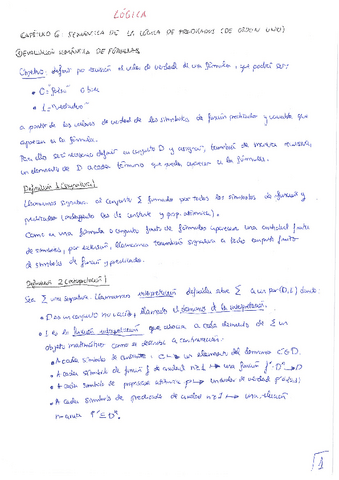 LÓGICA
CAPÍTULO 6 SEMÁNTICA DE LA LÓGICA DE PREDICADOS (DE ORDEN UNO)
EVALUACIÓN SEMÁNTICA DE FÓRMULAS
Objetivo: definir por recursión el valor de verdad de una fórmula, que podrá ser:
• 0 = "falso" o bien
• 1 = "verdadero"
a partir de los valores de verdad de los símbolos de función predicador y variable que
aparecen en la fórmula.
Para ello será necesario definir un conjunto D y asignar, también de manera recursiva,
un elemento de D a cada término que pueda aparecer en la fórmula.
Definición 1 (signatura)
Llamaremos signatura al conjunto Σ formado por todos los símbolos de función y
predicados (incluyendo los de constante y prop. atómica).
Como en una fórmula o conjunto finito de fórmulas aparece una cantidad finita
de símbolos, por extensión, llamaremos también signatura a todo conjunto finito
de símbolos de función y predicado.
Definición 2 (interpretación)
Sea Σ una signatura. Llamaremos interpretación definida sobre Σ a un par (D, I) donde:
• D es un conjunto no vacío, llamado el dominio de la interpretación.
• I es la función interpretación que asocia a cada elemento de Σ un
objeto matemático como se describe a continuación:
• A cada símbolo de constante: c un elemento del dominio c ∈ D.
• A cada símbolo de función f de aridad n≥1 una función f: Dⁿ → D
• A cada símbolo de proposición atómica p un valor de verdad
• A cada símbolo de predicado de aridad n≥1 una relación
n-aria ⊆ Dⁿ.
1